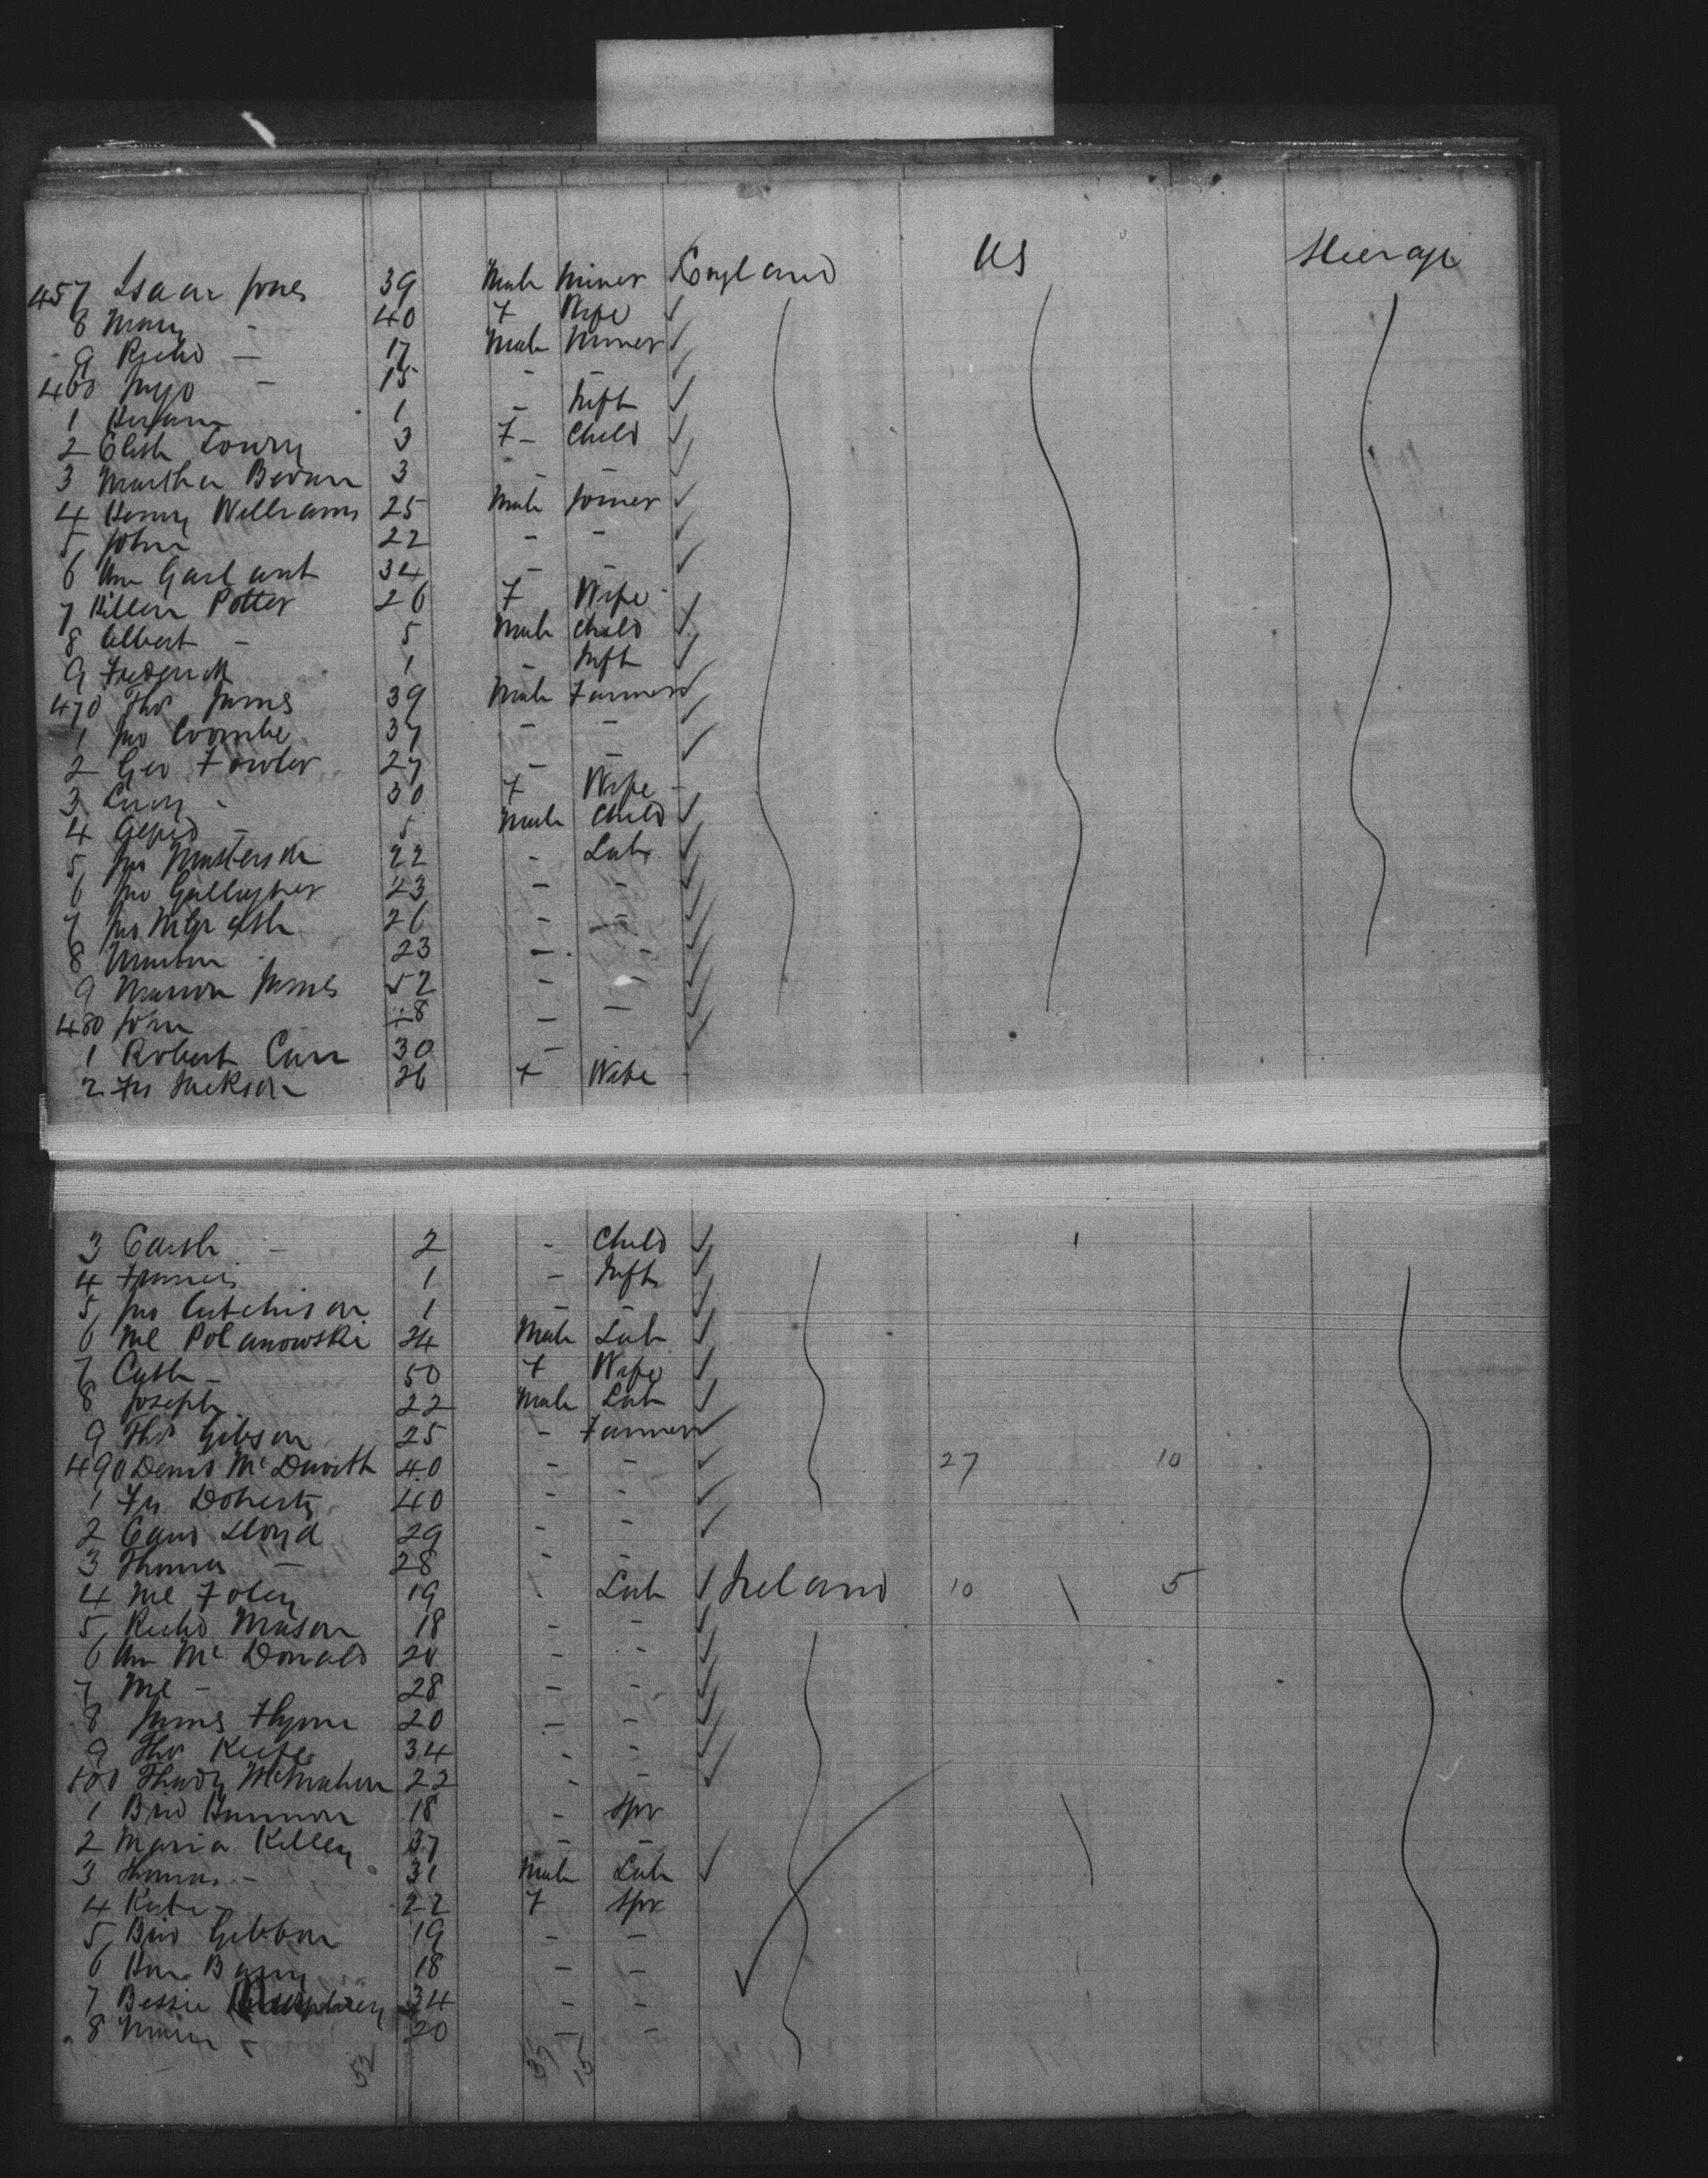 457 Isaac Jones 39 Male Miner England US Steerage
8 Mary - 40 F Wife
9 Richd - 17 Male Miner
460 - 15 - -
1 1 - Inft
2 Elish Lowry 3 F - Child
3 Martha Bevan 3 - -
4 Henry Williams 25 Male Joiner
5 John 22 - -
6 Wm Garland 34 - -
7 Ellen Potter 26 F Wife
8 Albert - 5 Male Child
9 Frederick 1 - Inft
470 Thos James 39 Male Farmer
1 Jno Coombe 37 - -
2 Geo Fowler 27 - -
3 Lucy - 30 F Wife
4 Alfred - 5 Male Child
5 Jno 22 - Labr
6 Jno Gallagher 23 - -
7 Jno McGrath 26 - -
8 Martin 23 - -
9 James 52 - -
480 John 18 - -
1 Robert Carr 30 -
2 Fs Jackson 26 F Wife
3 - 2 - Child
4 Francis 1 - Inft
5 Jno Cutchison 1 - -
6 Ml Polanowski 24 Male Lab
7 Cath - 50 F Wife
8 Joseph 22 Male Lab
9 Thos Gibson 25 - Farmer
490 Denis McDavitt 40 - - 27 10
1 Fs Doherty 40 - -
2 Lloyd 29 - -
3 Thomas - 28 - -
4 Ml Foley 19 Lab Ireland 10 5
5 Richd Mason 18 - -
6 Wm McDonald 20 - -
7 Ml - 28 - -
8 James Flynn 20 - -
9 Thos Keefe 34 - -
500 Thady McMahon 22 - -
1 Brid Hannon 18 - Spr
2 Maria Killey 37 - -
3 Thomas - 31 Male Lab
4 Kate - 22 F Spr
5 Brid Gibbon 19 - -
6 Barry 18 - -
7 Bessie 34 - -
8 - 20 - -
52 37 15